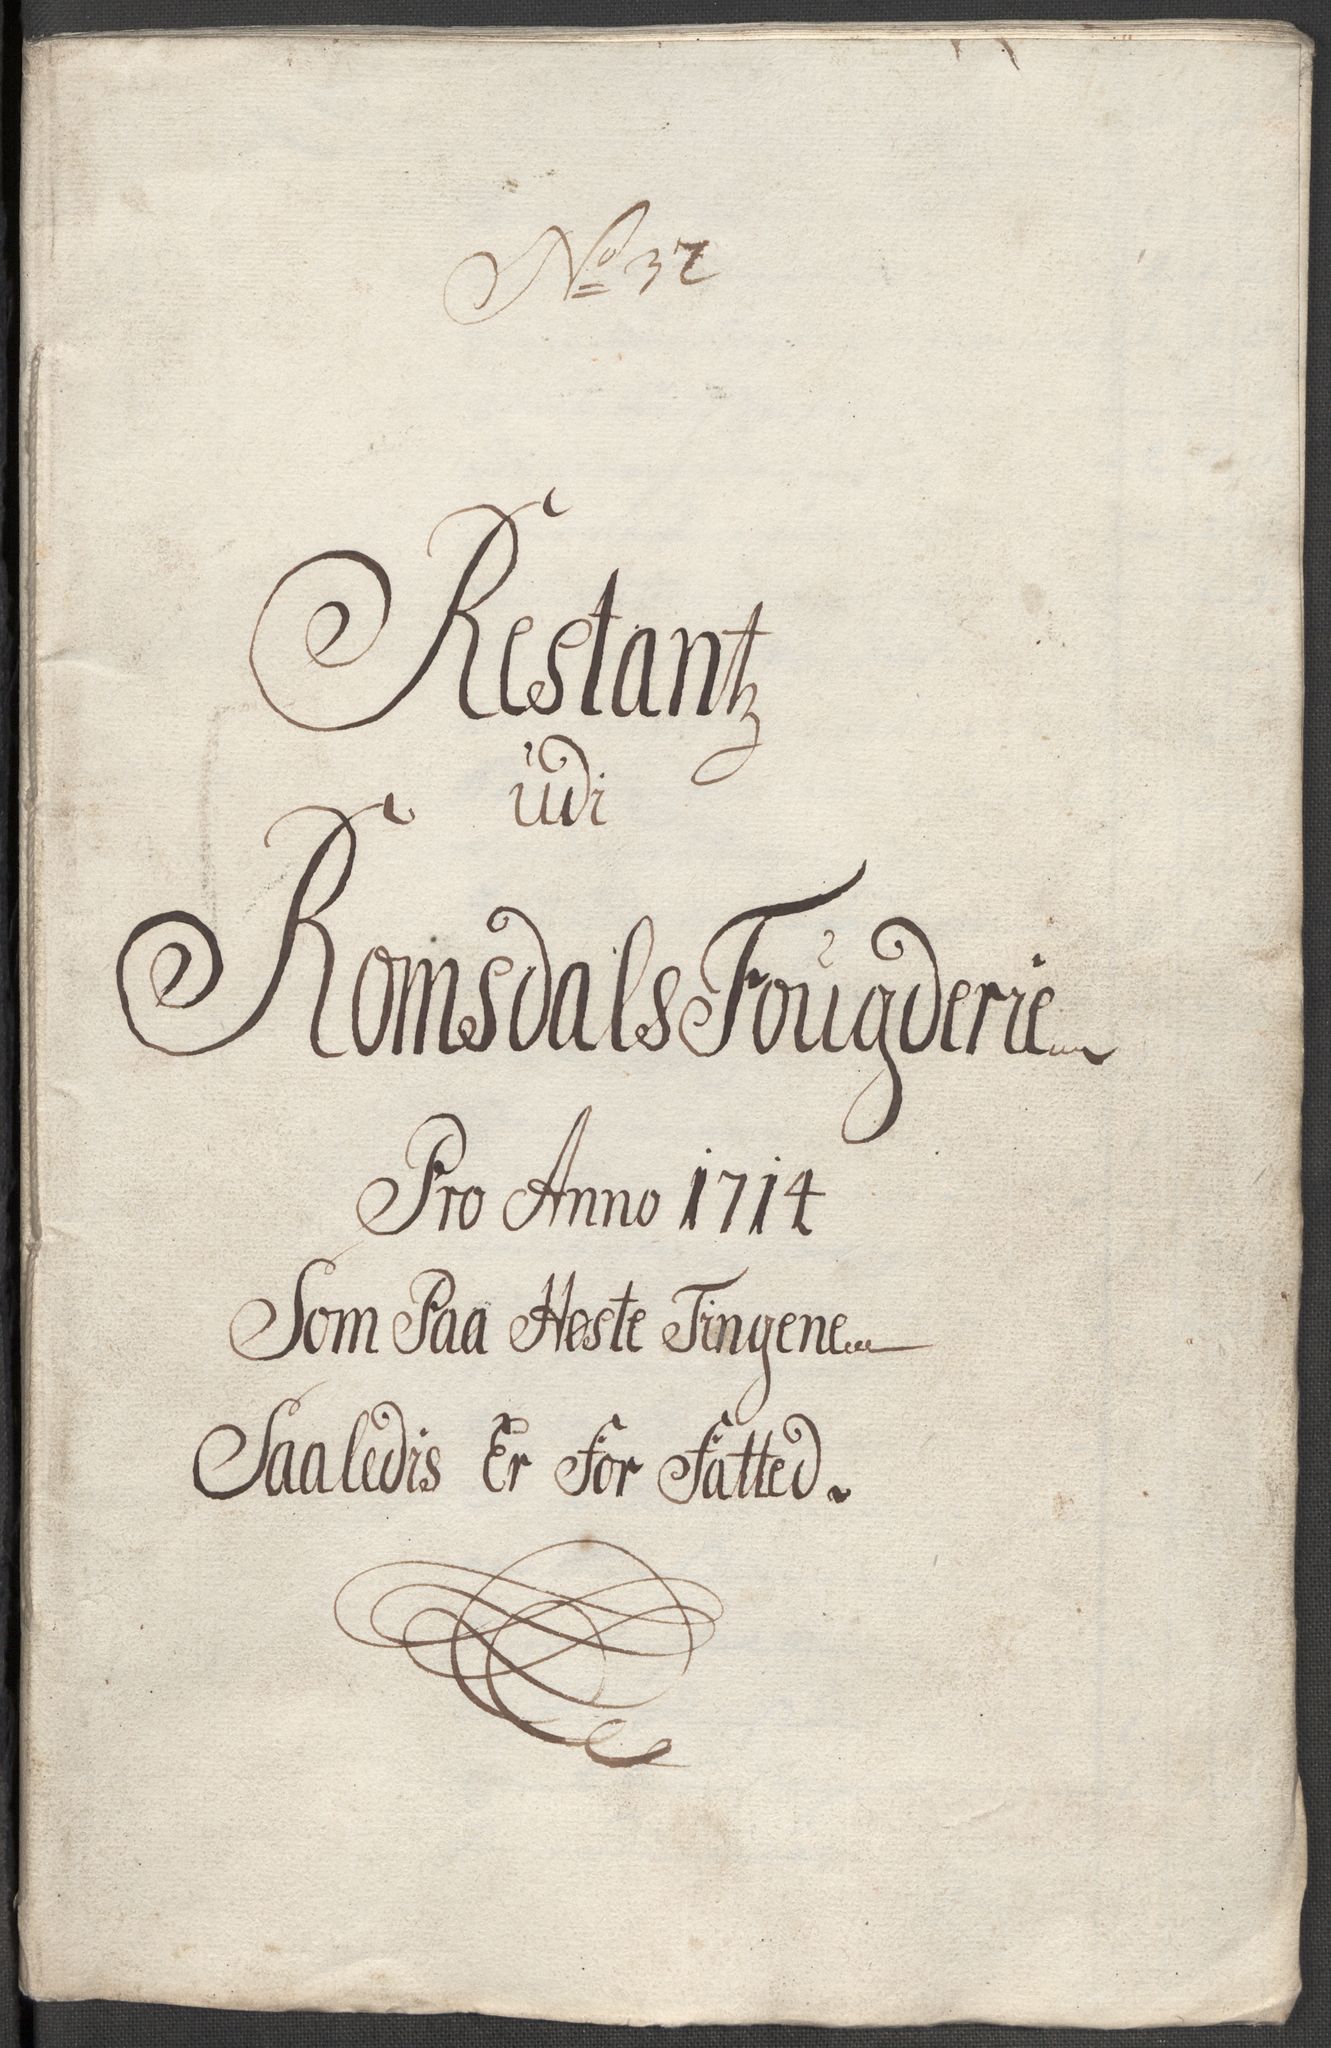 No 37
Restantz
udi
Romsdals Fougderie
Pro Anno 1714
Som Paa Høste Tingene
Saaledis Er for fatted.